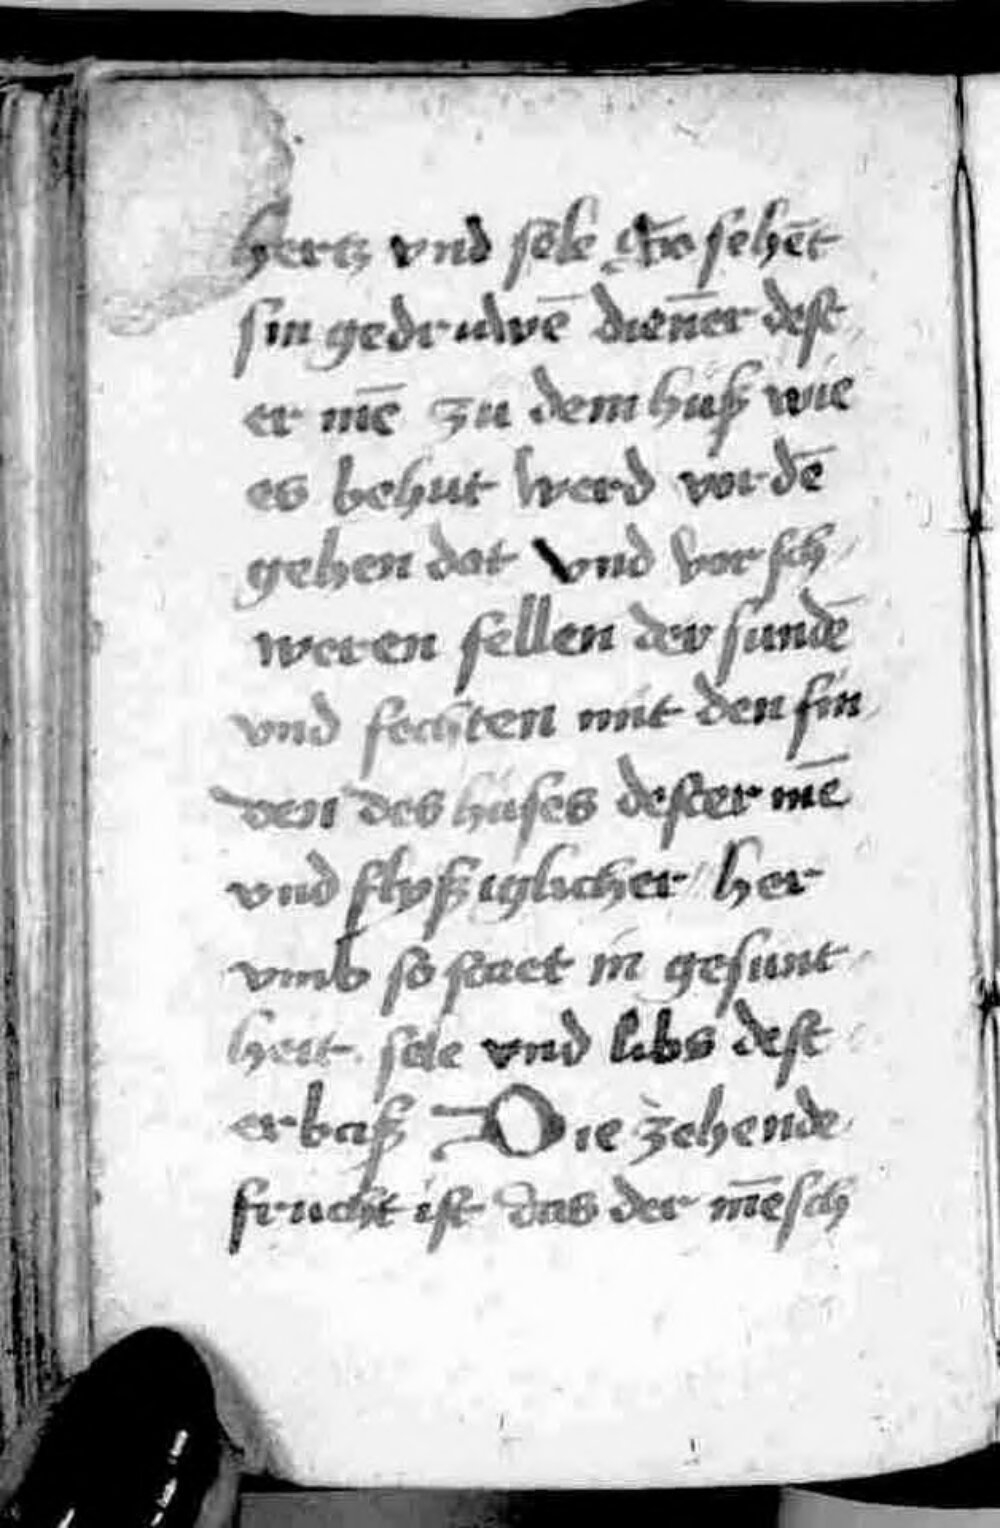 hertz vnd sele sehēt
sin gedruwē dieñer dest
er mē zu dem huß wie
es behut werd vor dē
gehen dot vnd vor sch
weren fellen der sundē
vnd fechten mit den fin
den des huses dester mē
vnd flyßiglicher / her
vmb so stet in gesunt
heit sele vnd libs dest
er baß Die zehende
frucht ist das der mēsch